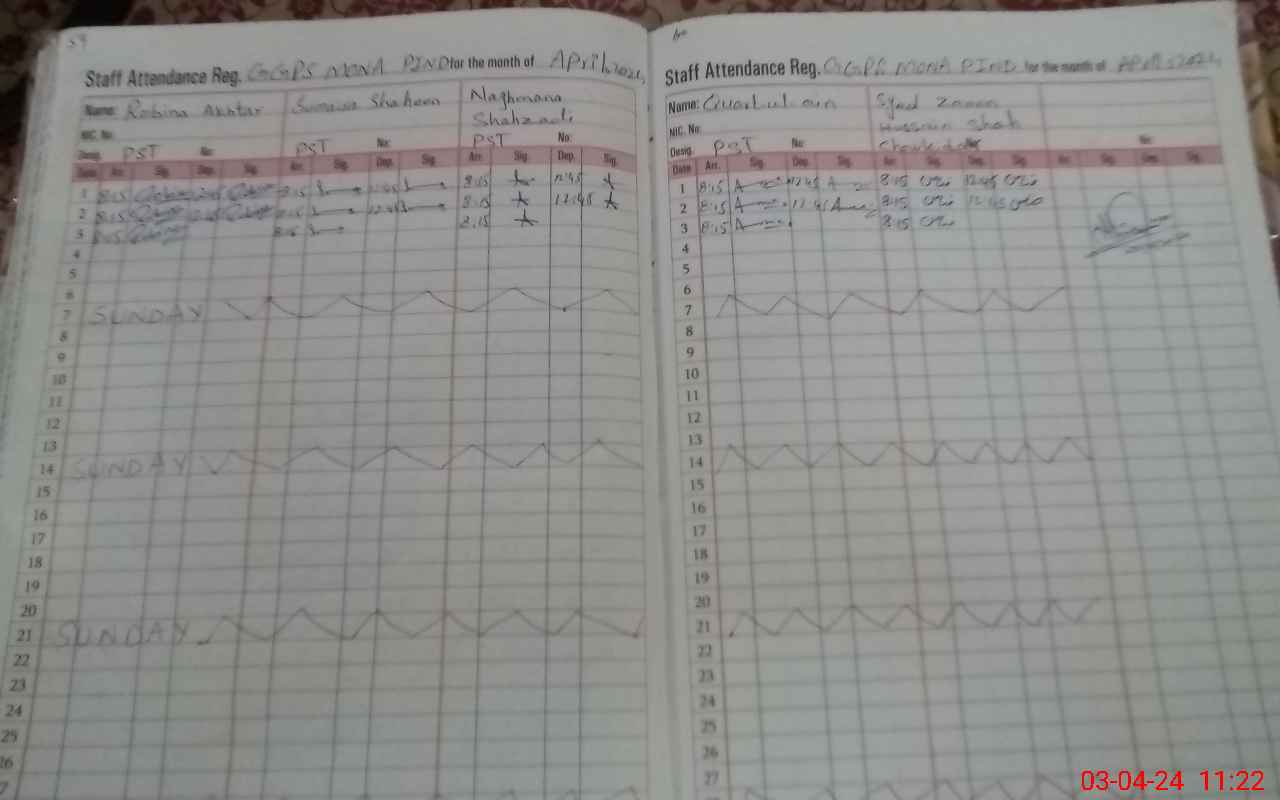 59
Staff Attendance Reg. GGPS MONA PIND for the month of April, 2024
Name: Robina Akhtar Sumaira Shaheen Naghmana Shahzadi
NIC. No.
Desig. PST No: PST No: PST No:
Date Arr. Sig. Dep. Sig. Arr. Sig. Dep. Sig. Arr. Sig. Dep. Sig.
1 8:15 8:15 12:45 8:15 12:45
2 8:15 12:45 8:15 12:45 8:15 12:45
3 8:15 8:15 8:15
4
5
6
7 SUNDAY
8
9
10
11
12
13
14 SUNDAY
15
16
17
18
19
20
21 SUNDAY
22
23
24
25
26
7
60
Staff Attendance Reg. GGPS MONA PIND for the month of April 2024
Name: Syed Zaman
Hussain Shah
NIC. No:
Desig. PST No: Chowkidar No:
Date Arr. Sig. Dep. Sig. Arr. Sig. Dep. Sig. Arr. Sig. Dep. Sig.
1 8:15 12:45 8:15 12:45
2 8:15 12:45 8:15 12:45
3 8:15 8:15
4
5
6
7
8
9
10
11
12
13
14
15
16
17
18
19
20
21
22
23
24
25
26
27
03-04-24 11:22